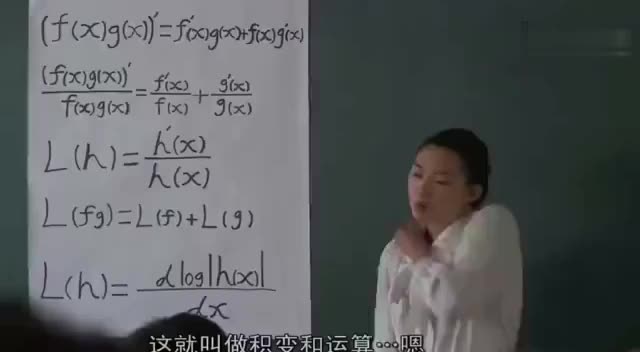 (f(x)g(x))'=f'(x)g(x)+f(x)g'(x)
(f(x)g(x))'/f(x)g(x)=f'(x)/f(x)+g'(x)/g(x)
L(h)=h'(x)/h(x)
L(fg)=L(f)+L(g)
L(h)=d log|h(x)|/dx
这就叫做积变和运算…嗯